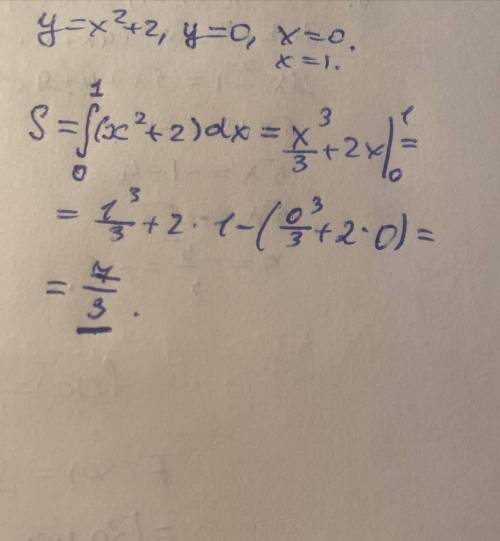 y=x²+2, y=0, x=0.
x=1.
S=∫₀¹(x²+2)dx=x³/3+2x|₀¹=
=1³/3+2·1-(0³/3+2·0)=
=7/3.